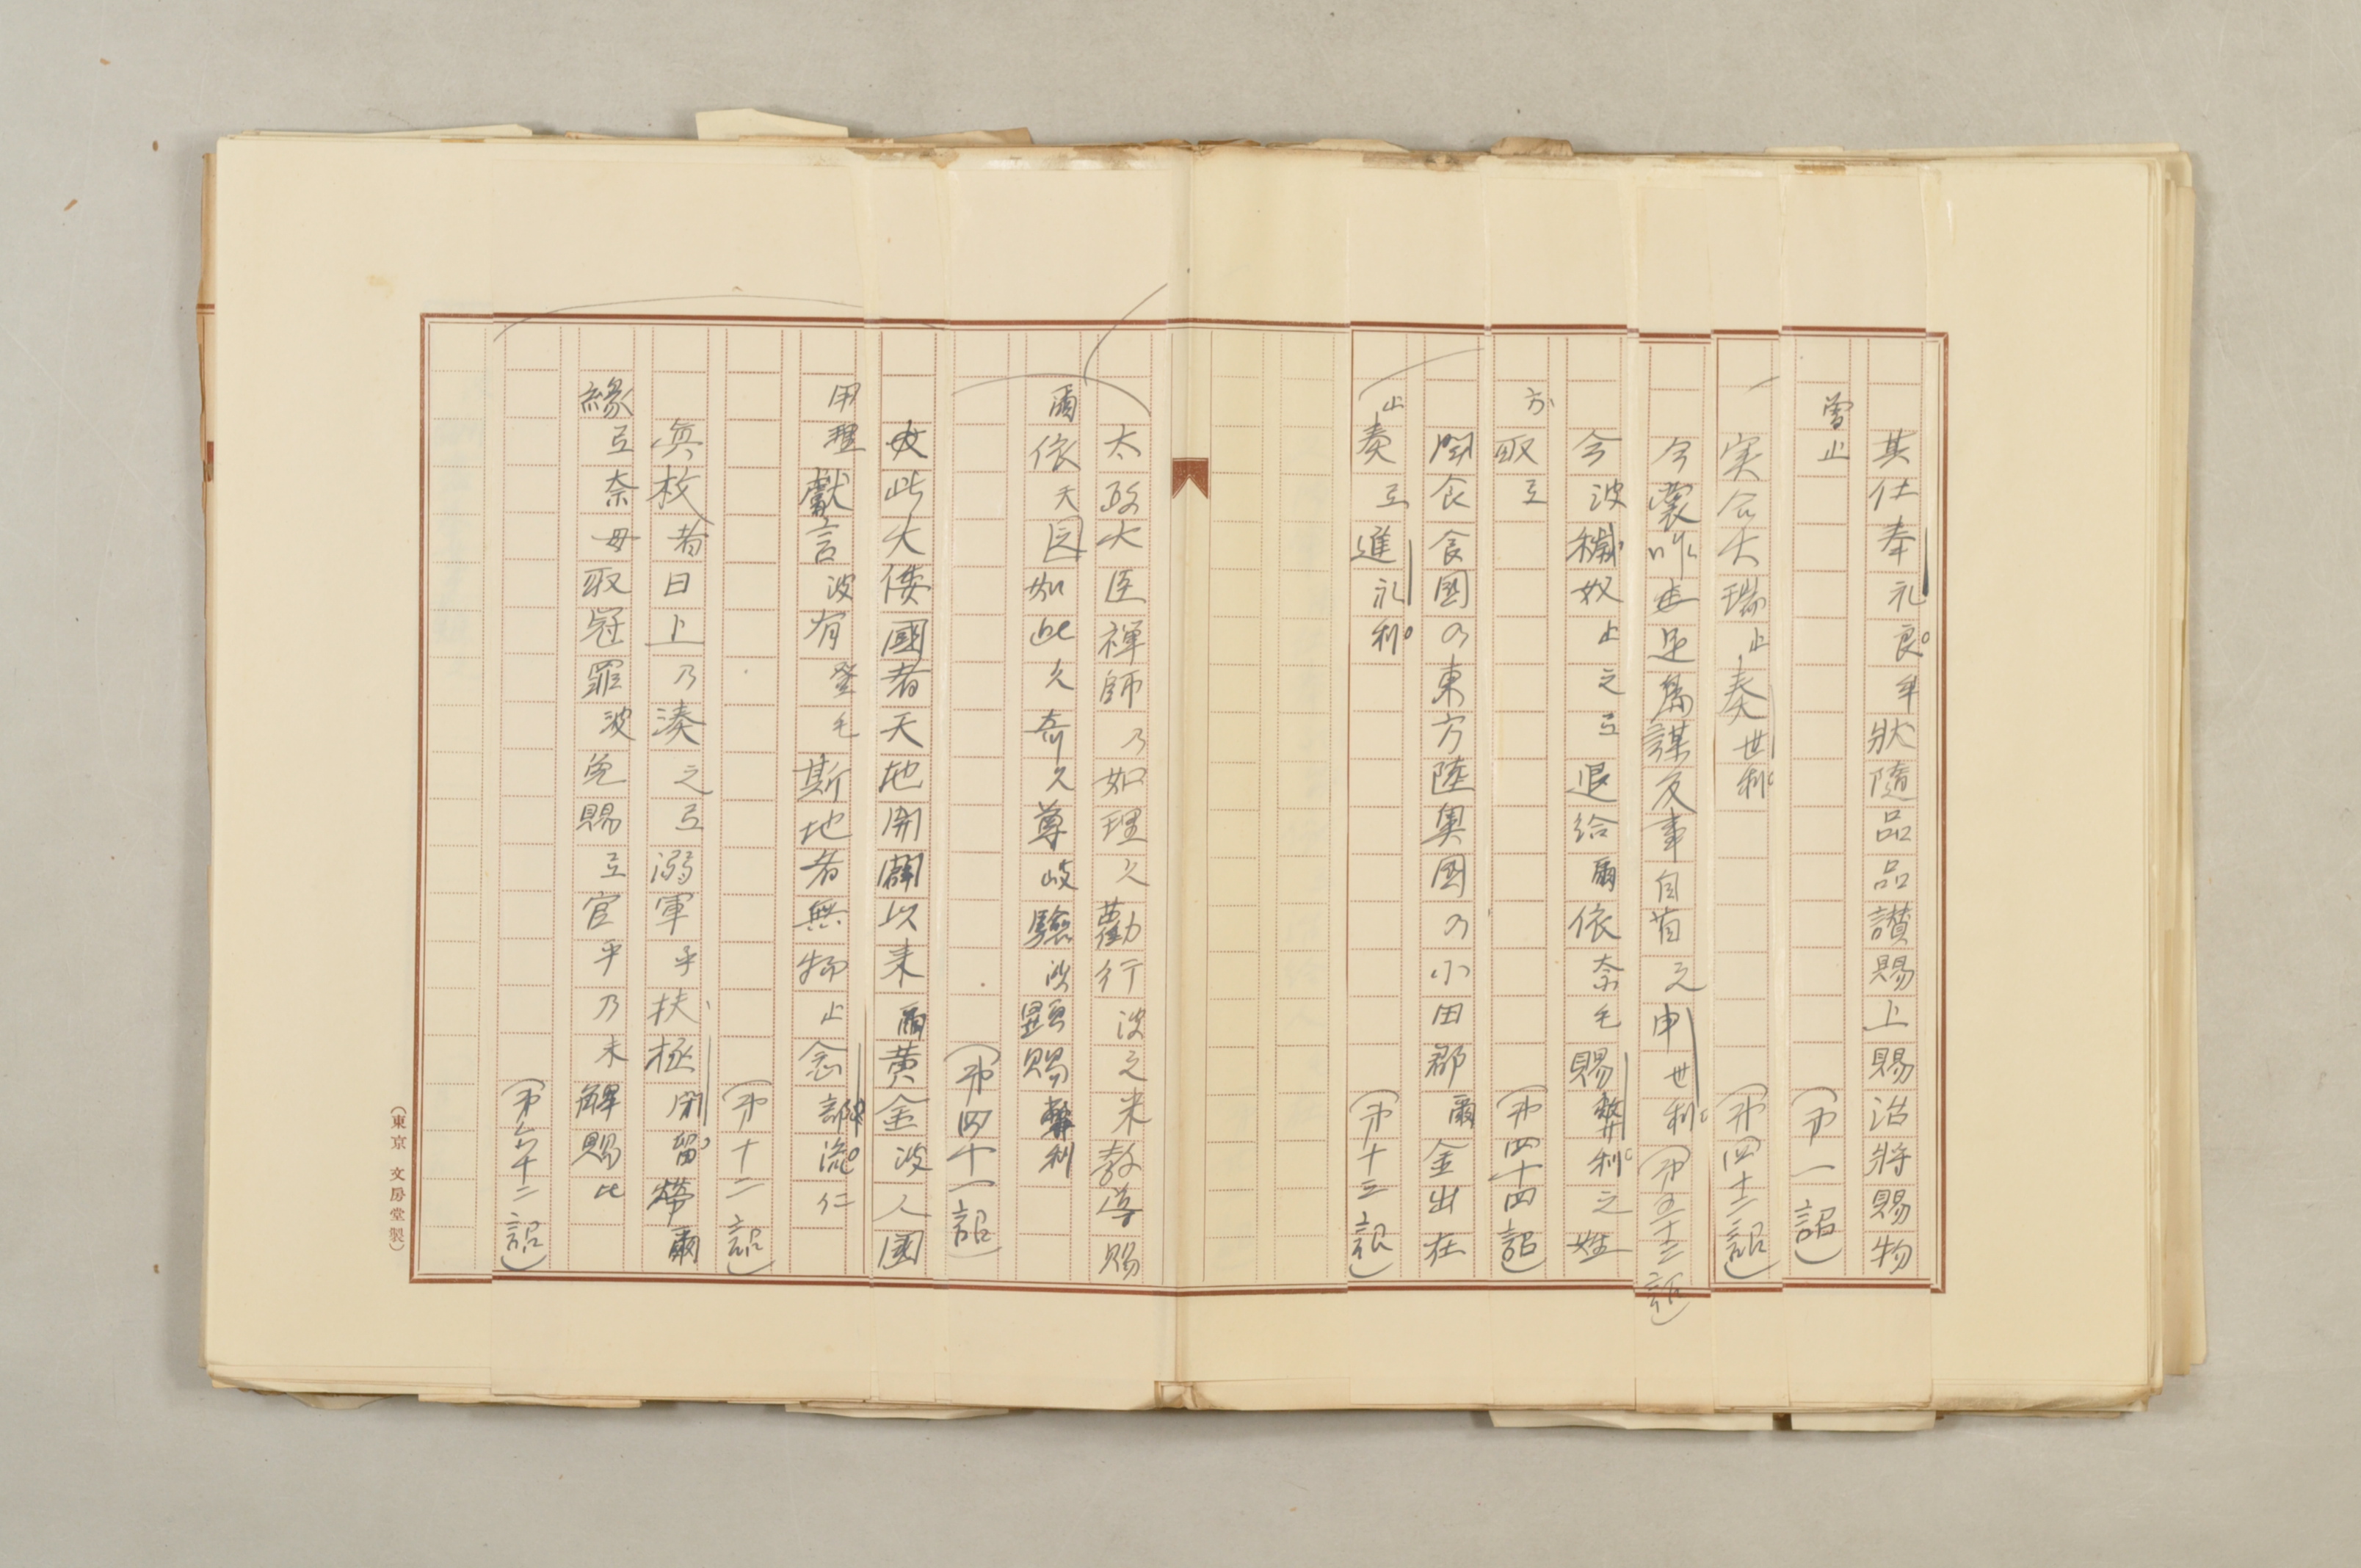 其仕奉礼良牟状隨品品讃賜上賜治将賜物
曽止　（㐧一詔）
実合大瑞止奏世利　（㐧四十二詔）
今裳咋足嶋謀反事自首之申世利（㐧五十三詔）
今波穢奴止之弖退給爾依奈毛賜弊利之姓
方取弖　（㐧四十四詔）
聞食食國の東方陸奥國の小田郡爾金出在
止奏弖進礼利　（㐧十三詔）
太政大臣禅師乃如理久勸行波之米教導賜
爾依天之如此久奇久尊岐驗波顯賜弊利
（㐧四十一詔）
故此大倭國者天地開闢以来爾黄金波人國
用理獻言波有登毛斯地者無物止念部流仁
（㐧十二詔）
眞枚者日上乃湊之弖溺軍乎扶拯閇留勞爾
縁弖奈毋取冠罪波免賜弖官乎乃未解賜比
（㐧六十二詔）
（東京　文房堂製）